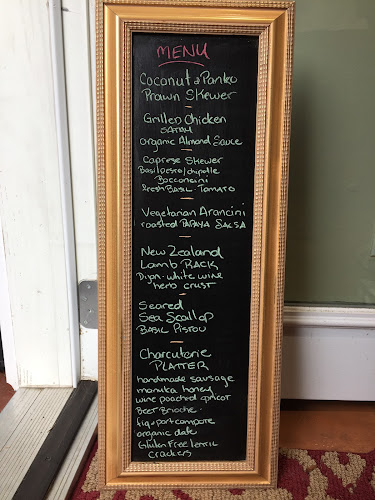 MENU
Coconut & Panko
Prawn Skewer
Grilled Chicken
SATAY
organic Almond Sauce
Caprese Skewer
Basil Pesto/chipotle
Bocconcini
fresh BASIL. Tomato
Vegetarian Arancini
roasted PAPAYA SALSA
New Zealand
Lamb RACK
Dijon-white wine
herb crust
Seared
Sea Scallop
BASIL PISTOU
Charcuterie
PLATTER
handmade sausage
manuka honey
wine poached apricot
BEET Brioche.
fig + port compote
organic date
Gluten Free lentil
crackers